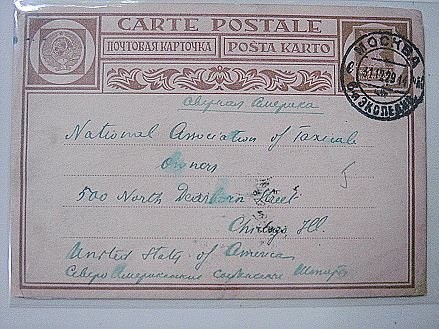 CARTE POSTALE
ПОЧТОВАЯ КАРТОЧКА POŜTA KARTO
МОСКВА
Северная Америка
National Association of Taxicab
Owners
500 North Dearborn Street
Chicago Ill.
United States of America
Северо Американские Соединенные Штаты